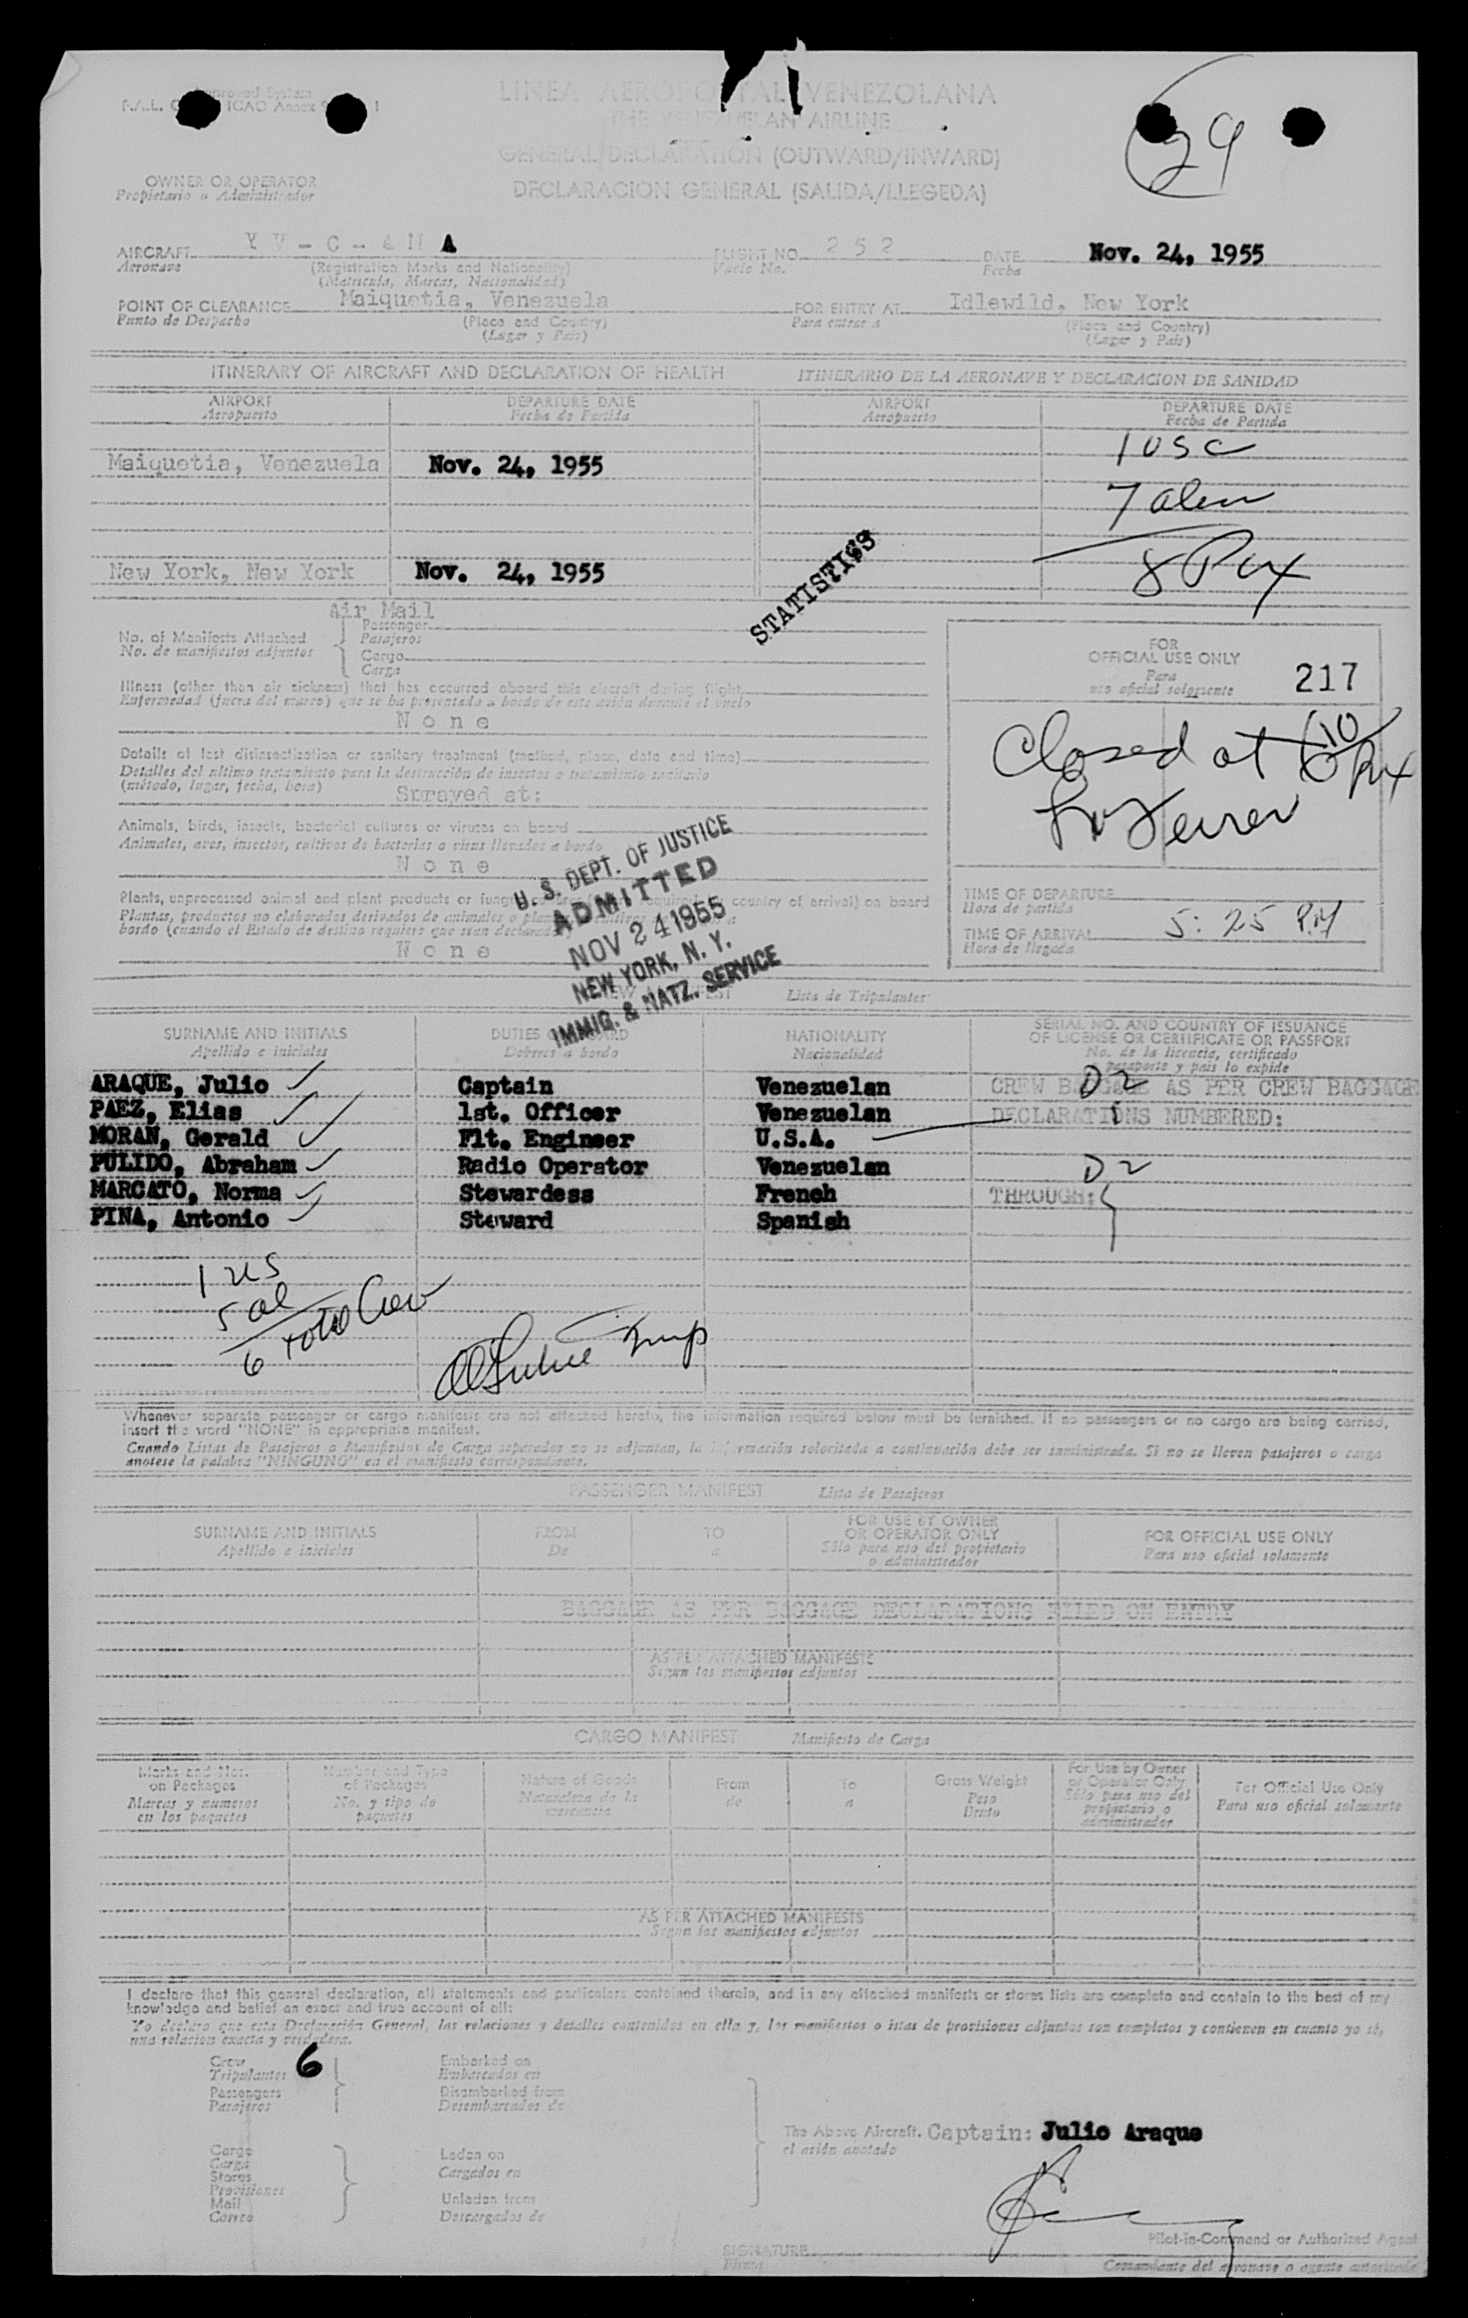 LINEA AEROPOSTAL VENEZOLANA
THE VENEZUELAN AIRLINE
GENERAL DECLARATION (OUTWARD/INWARD)
DECLARACION GENERAL (SALIDA/LLEGEDA)
29
OWNER OR OPERATOR
Propietario o Administrador
AIRCRAFT YV-C-AMA FLIGHT NO. 252 DATE Nov. 24, 1955
Aeronave (Registration Marks and Nationality) Vuelo No. Fecha
(Matricula, Marcas, Nacionalidad)
POINT OF CLEARANCE Maiquetia, Venezuela FOR ENTRY AT Idlewild, New York
Punto de Despacho (Place and Country) Para entrar a (Place and Country)
(Lugar y Pais) (Lugar y Pais)
ITINERARY OF AIRCRAFT AND DECLARATION OF HEALTH ITINERARIO DE LA AERONAVE Y DECLARACION DE SANIDAD
AIRPORT DEPARTURE DATE AIRPORT DEPARTURE DATE
Aeropuerto Fecha de Partida Aeropuerto Fecha de Partida
1 USC
Maiquetia, Venezuela Nov. 24, 1955
7 alien
STATISTICS
New York, New York Nov. 24, 1955
8 Pax
Air Mail
No. of Manifests Attached Passenger
No. de manifiestos adjuntos Pasajeros
Cargo
Carga
FOR
OFFICIAL USE ONLY
Para
uso oficial solamente
217
Illness (other than air sickness) that has occurred aboard this aircraft during flight
Enfermedad (fuera del mareo) que se ha presentado a bordo de este avión durante el vuelo
None
Closed at
Details of last disinsectization or sanitary treatment (method, place, date and time)
Detalles del ultimo tratamiento para la destrucción de insectos o tratamiento sanitario
(método, lugar, fecha, hora) Sprayed at:
Animals, birds, insects, bacterial cultures or viruses on board
Animales, aves, insectos, cultivos de bacterias o virus llevados a bordo
None
U. S. DEPT. OF JUSTICE
ADMITTED
NOV 24 1955
NEW YORK, N. Y.
IMMIG. & NATZ. SERVICE
Plants, unprocessed animal and plant products or country of arrival) on board
Plantas, productos no elaborados derivados de animales o
bordo (cuando el Estado de destino requiere que sean
None
TIME OF DEPARTURE
Hora de partida
TIME OF ARRIVAL 5:25 PM
Hora de llegada
Lista de Tripulantes
SURNAME AND INITIALS DUTIES NATIONALITY SERIAL NO. AND COUNTRY OF ISSUANCE
OF LICENSE OR CERTIFICATE OR PASSPORT
Apellido e iniciales Deberes a bordo Nacionalidad No. de la licencia, certificado
pasaporte y pais lo expide
ARAQUE, Julio Captain Venezuelan CREW BAGGAGE AS PER CREW BAGGAGE
PAEZ, Elias 1st. Officer Venezuelan DECLARATIONS NUMBERED:
MORAN, Gerald Flt. Engineer U.S.A.
PULIDO, Abraham Radio Operator Venezuelan D2
MARCATO, Norma Stewardess French THROUGH:
PINA, Antonio Steward Spanish
1 US
5 al
6 total Crew
Whenever separate passenger or cargo manifests are not attached hereto, the information required below must be furnished. If no passengers or no cargo are being carried,
insert the word "NONE" in appropriate manifest.
Cuando Listas de Pasajeros o Manifiestos de Carga separados no se adjuntan, la información solicitada a continuación debe ser suministrada. Si no se lleven pasajeros o carga
anotese la palabra "NINGUNO" en el manifiesto correspondiente.
PASSENGER MANIFEST Lista de Pasajeros
SURNAME AND INITIALS FROM TO FOR USE BY OWNER OR OPERATOR ONLY FOR OFFICIAL USE ONLY
Apellido e iniciales De a Sólo para uso del propietario o administrador Para uso oficial solamente
BAGGAGE AS PER BAGGAGE DECLARATIONS FILED ON ENTRY
AS PER ATTACHED MANIFESTS
Segun los manifiestos adjuntos
CARGO MANIFEST Manifiesto de Carga
Marks and Nos. on Packages Number and Type of Packages Nature of Goods From To Gross Weight For Use by Owner or Operator Only For Official Use Only
Marcas y numeros en los paquetes No. y tipo de paquetes Naturaleza de la mercancia de a Peso Bruto Sólo para uso del propietario o administrador Para uso oficial solamente
AS PER ATTACHED MANIFESTS
Segun los manifiestos adjuntos
I declare that this general declaration, all statements and particulars contained therein, and in any attached manifests or stores lists are complete and contain to the best of my
knowledge and belief an exact and true account of all:
Yo declaro que esta Declaración General, las relaciones y detalles contenidos en ella y, los manifiestos o istas de provisiones adjuntos son completos y contienen en cuanto yo sé,
una relacion exacta y verdadera.
Crew 6 Embarked on
Tripulantes Embarcados en
Passengers Disembarked from
Pasajeros Desembarcados de
The Above Aircraft. Captain: Julio Araque
el avión anotado
Cargo Laden on
Carga Cargados en
Stores
Provisiones
Mail Unladen from
Correo Descargados de
Pilot-in-Command or Authorized Agent
SIGNATURE
Firma Comandante del aeronave o agente autorizado